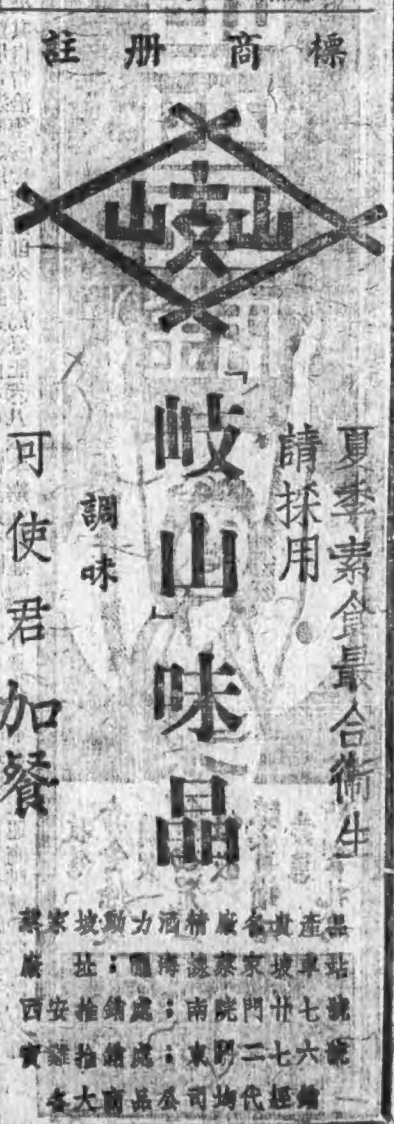 註册商標
岐山
夏季素食最合衛生
請採用
「岐山」味品
調味
可使君加餐
蔡家坡動力酒精廠名貴產品
廠址：隴海線蔡家坡車站
西安推銷處：南院門廿七號
寶雞推銷處：東關二七六號
各大商品公司均代經銷